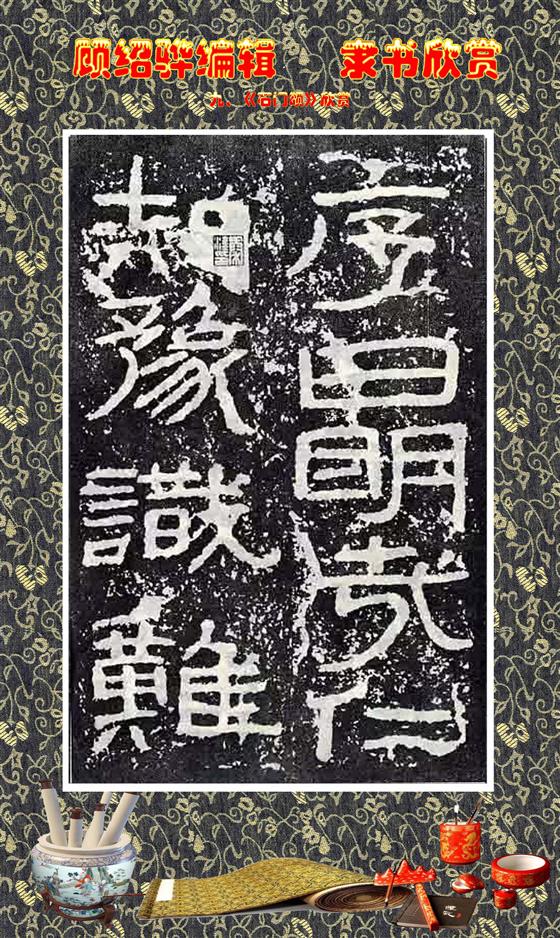 顾绍骅编辑 隶书欣赏
九、《石门颂》欣赏
序曰明哉仁
知豫識難